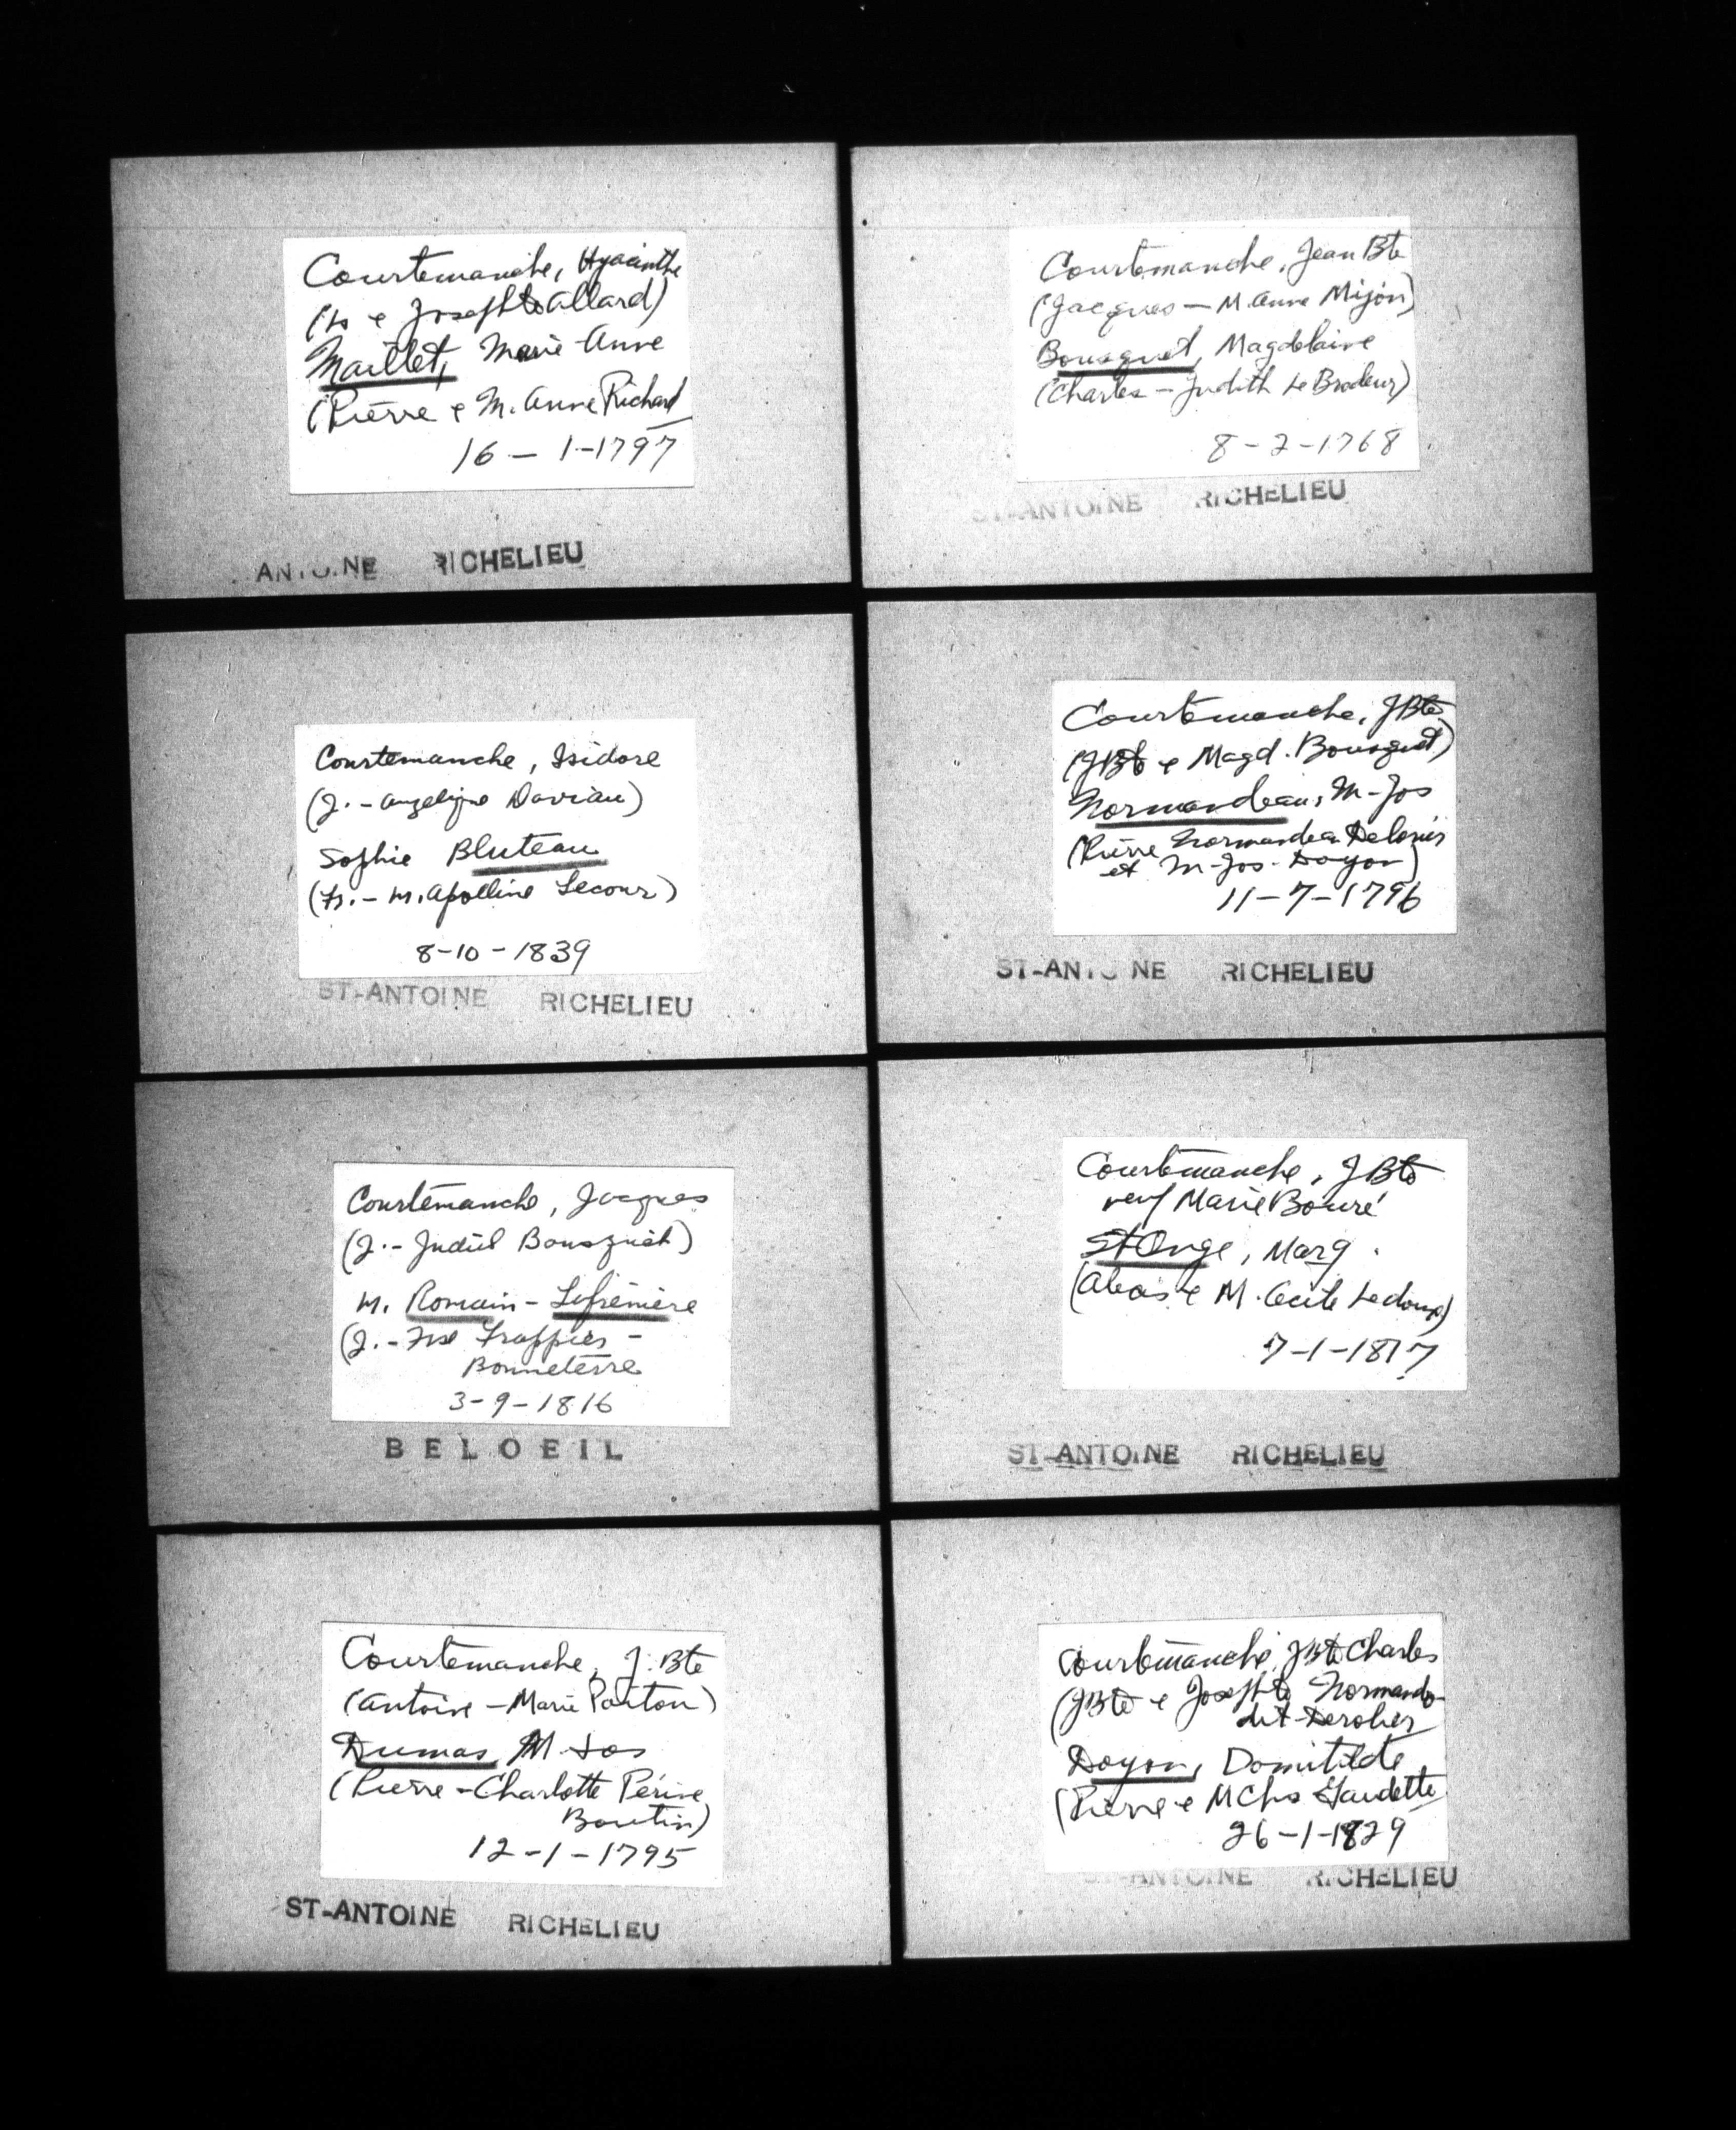 Courtemanche, Hyacinthe
(Fs e Josephte Allard)
Maillet, Marie-Anne
(Pierre e M. Anne Richard
16-1-1797
ANTOINE RICHELIEU
Courtemanche, Jean Bte
(Jacques - M. Anne Mijon)
Bousquet, Magdelaine
(Charles - Judith Le Brodeur)
8-2-1768
ST-ANTOINE RICHELIEU
Courtemanche, Isidore
(J. - Angelique Davian)
Sophie Bluteau
(Fs. - M. Apolline Lecour)
8-10-1839
ST-ANTOINE RICHELIEU
Courtemanche, JBte
(JBte e Magd. Bousquet)
Normandeau, M-Jos
(Pierre Normandeau
et M-Jos. Doyon)
11-7-1796
ST-ANTOINE RICHELIEU
Courtemanche, Jacques
(J. - Judith Bousquet)
M. Romain - Lafrenière
(J. - Frappier -
Bonneterre
3-9-1816
BELOEIL
Courtemanche, JBte
veuf Marie Bouré
St Onge, Marg.
(Alexis e M. Cecile Ledoux)
7-1-1817
ST-ANTOINE RICHELIEU
Courtemanche, J. Bte
(Antoine - Marie Panton)
Dumas, M-Jos
(Pierre - Charlotte Périne
Boutin)
12-1-1795
ST-ANTOINE RICHELIEU
Courtemanche, JBte Charles
(JBte e Josephte
dit
Doyon, Domitilde
(Pierre e M Chs Gaudette
26-1-1829
ST-ANTOINE RICHELIEU